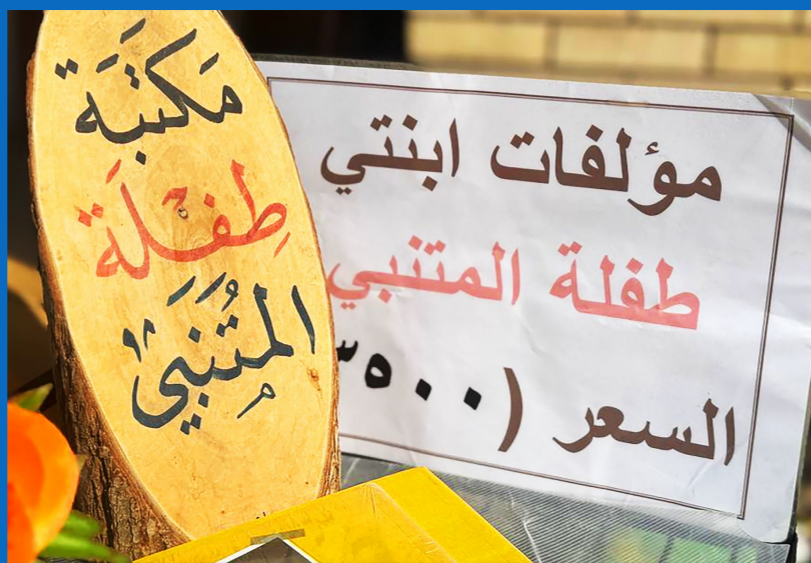 مَكتبَة
طِفلَة
المُتنبي
مؤلفات ابنتي
طفلة المتنبي
السعر (٣٥٠٠